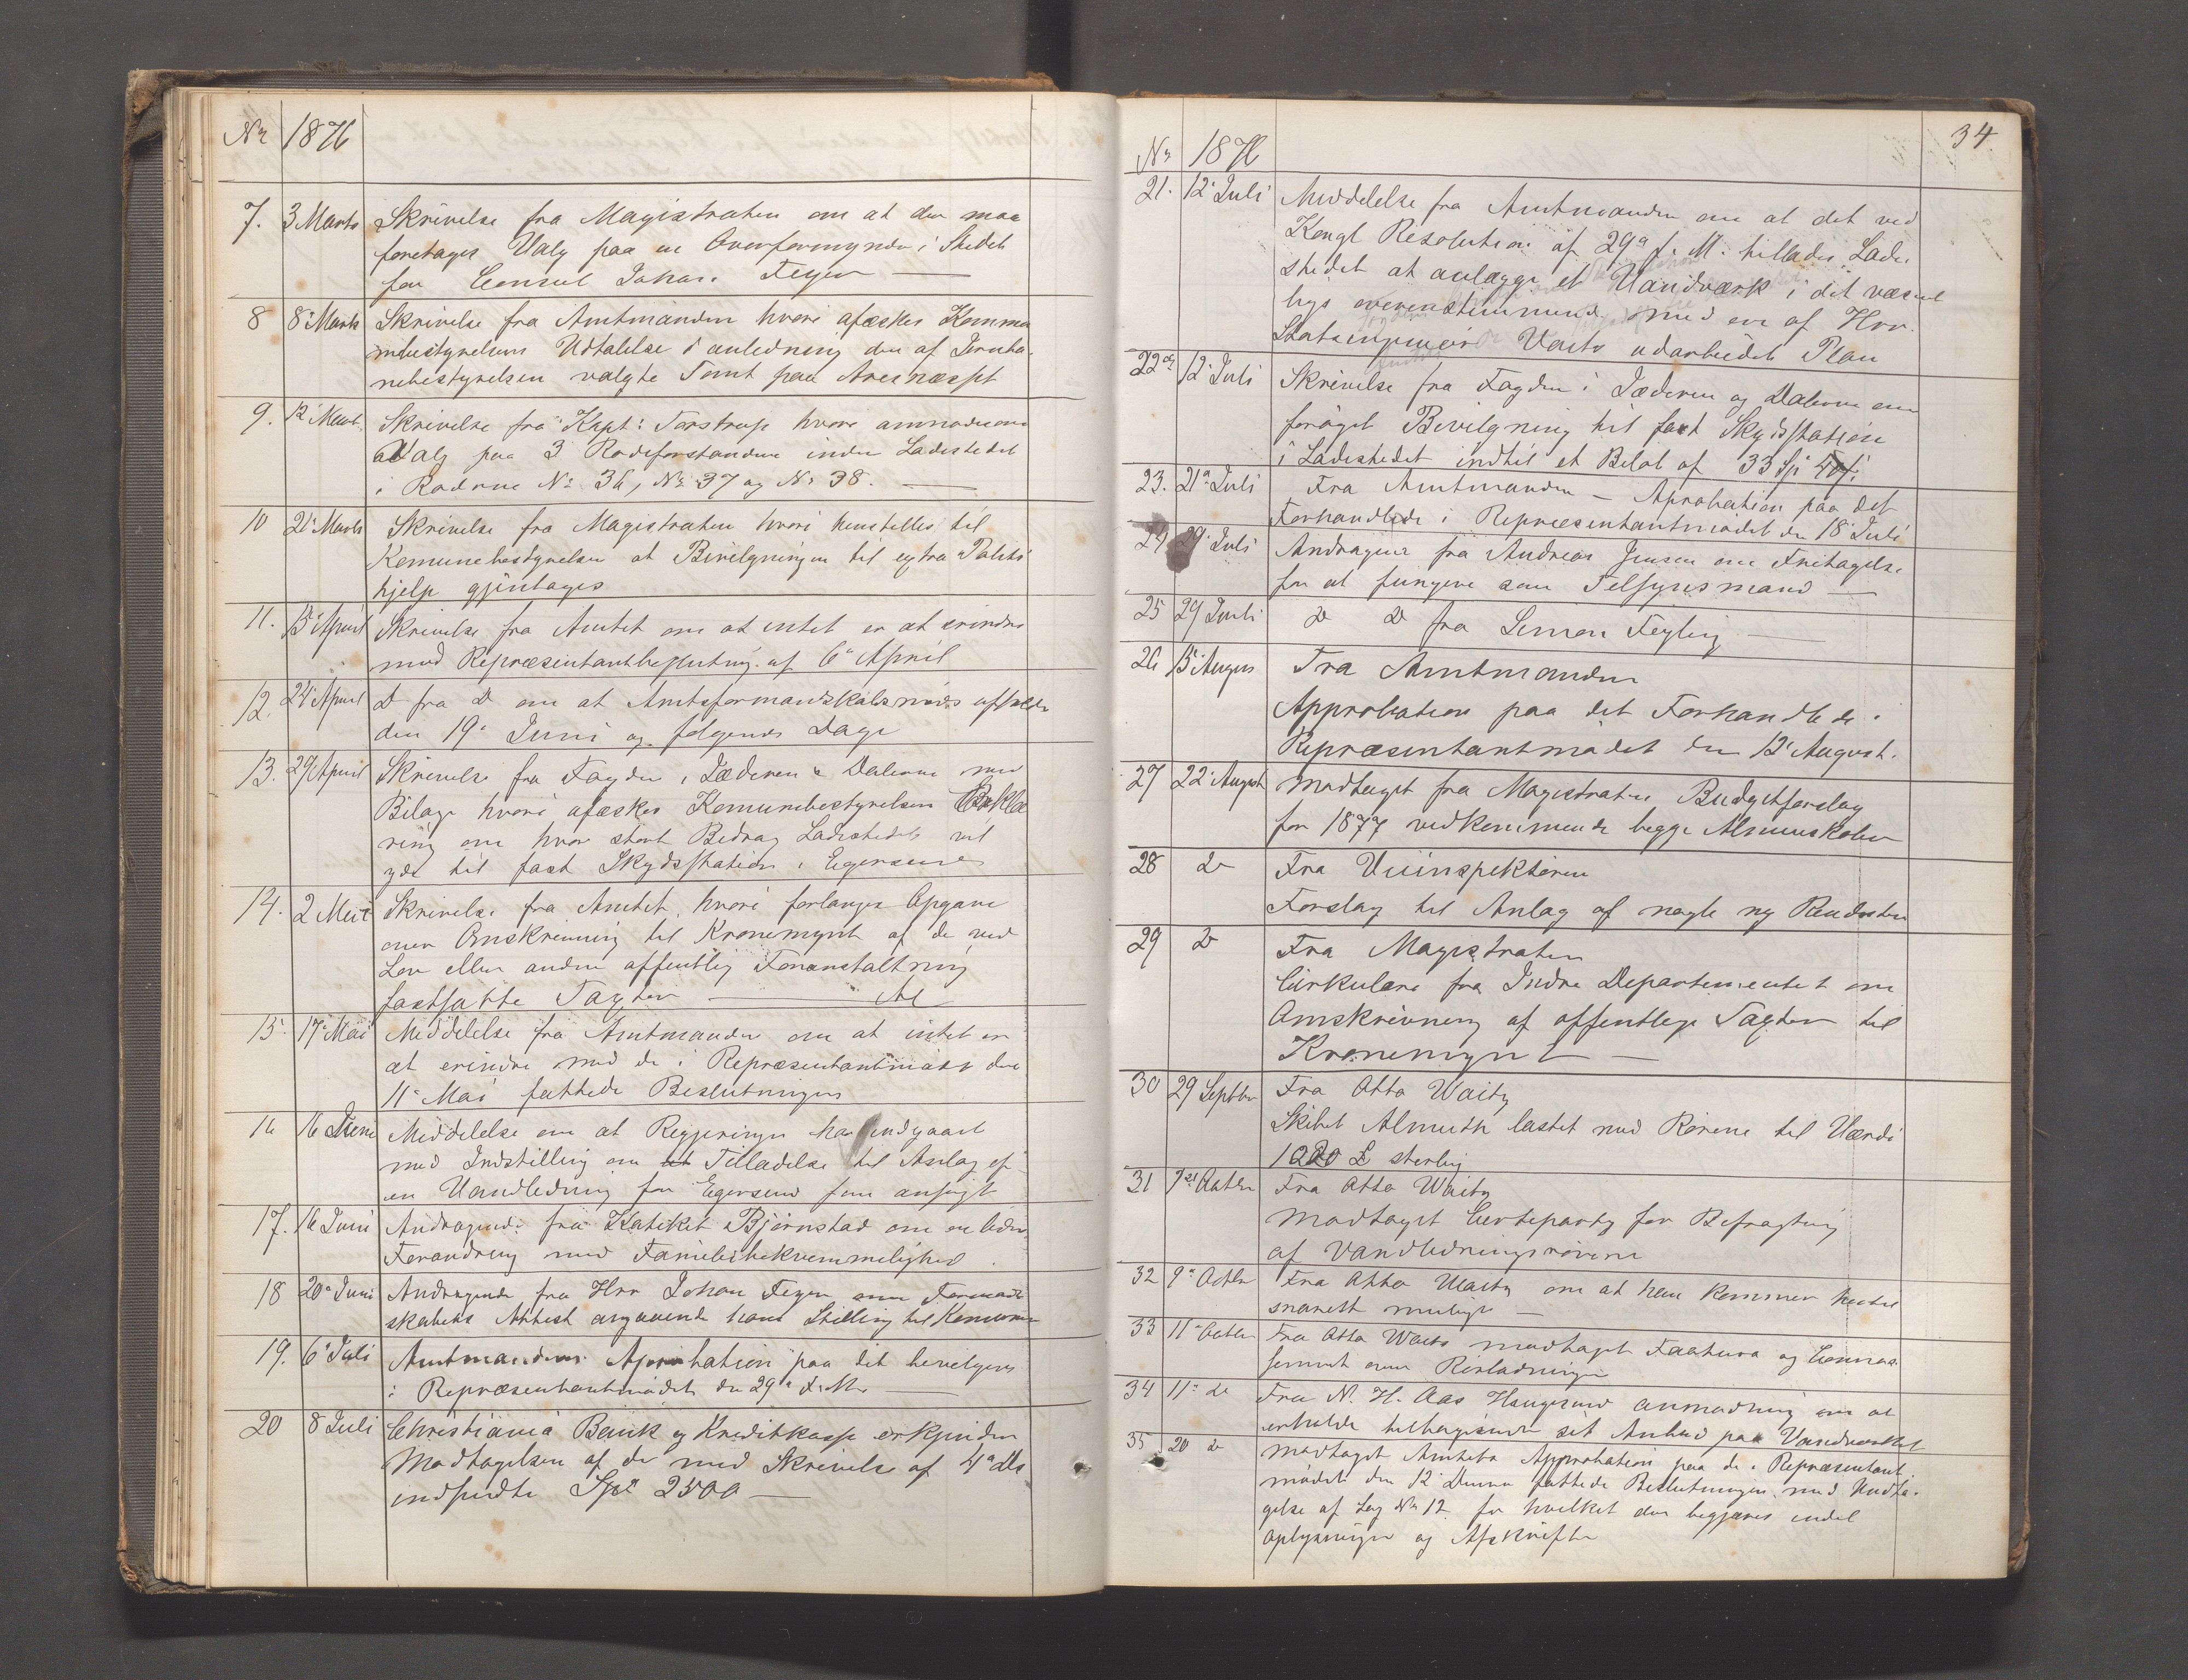 Nr 1876
7. 3 Marts Skrivelse fra Magistraten om at der maa
foretages Valg paa en Overformynder i Stedet
for Consul Johan Feyer —
8 8de Marts Skrivelse fra Amtmanden hvori afæskes Kommu
nebestyrelsens Udtalelse i anledning den af Jernba-
nebestyrelsen valgte Tomt paa Areneset
9. 12 Marts Skrivelse fra Kapt: Torstrup hvori anmodes om
Valg paa 3 Rodeforstandere inden Ladestedet
i Roderne No 36, No 37 og No 38. —
10 21 Marts Skrivelse fra Magistraten hvori henstilles til
Komunebestyrelsen at Bevilgningen til extra Politi
hjelp gjentages
11. 15 April Skrivelse fra Amtet om at intet er at erindre
mod Repræsentantbeslutning af 6te April
12. 24 April D fra D om at Amtsformandskabsmøde afholdes
den 19de Juni og følgende Dage
13. 29 April Skrivelse fra Fogden i Jæderen & Dalerne med
Bilage hvori afæskes Komunebestyrelsen Erklæ
ring om hvor stort Bidrag Ladestedet vil
yde til fast Skydsstation i Egersund
14. 2 Mai Skrivelse fra Amtet, hvori forlanges Opgave
over Omskrivning til Kronemynt af de ved
Lov eller anden offentlig Foranstaltning
fastsatte Taxter —
15. 17 Mai Meddelelse fra Amtmanden om at intet er
at erindre mod de i Repræsentantmøde den
11te Mai fattede Beslutninger
16 16 Juni Meddelelse om at Regjeringen har indgaaet
med Indstilling om Tilladelse til Anlæg af
en Vandledning for Egersund som ansøgt
17. 16 Juni Andragende fra Kateket Bjørnstad om en liden
Forandring med Familiebekvemmelighed.
18 20de Juni Andragende fra Hrr Johan Feyer om Formand
skabets Attest angaaende hans Stilling til Komunen
19. 6te Juli Amtmandens Aprobation paa det bevilgede
i Repræsentantmødet den 29de f. M. —
20 8 Juli Christiania Bank og Kreditkasse erkjender
Modtagelsen af de med Skrivelse af 4de ds
indsendte Spd 2500 —
34.
Nr 1876
21. 12te Juli Meddelelse fra Amtmanden om at det ved
Kongl Resolution af 29de f. M. tillades Lade
stedet at anlægge et Vandværk i det væsent
ligs overenstemmende med en af Hrr.
Statsingeniør Waitz udarbeidet Plan
22 12te Juli Skrivelse fra Fogden i Jæderen og Dalerne om
forøget Bevilgning til fast Skydsstation
i Ladestedet indtil et Beløb af 33 Sp
23. 21de Juli Fra Amtmanden — Aprobation paa det
Forhandlede i Repræsentantmødet den 18de Juli
24 29 Juli Andragende fra Andreas Jensen om Fritagelse
for at fungere som Tilsynsmand —
25 29 Juli D D fra Simon Feyling —
26 15 August Fra Amtmanden
Approbation paa det Forhandlede i
Repræsentantmødet den 12te August.
27 22 August Modtaget fra Magistraten Budgetforslag
for 1877 vedkommende begge Almueskoler
28 D Fra Veiinspektøren
Forslag til Anlæg af nogle ny Rendestene
29 D Fra Magistraten
Cirkulære fra Indre Departementet om
Omskrivning af offentlige Taxter til
Kronemynt —
30 29 Septbr Fra Otto Waitz
Skibet Almuth lastet med Rørene til Værdi
1020 £ sterling
31 7de Octbr Fra Otto Waitz
Modtaget Certeparty for Befragtning
af Vandledningsrørene
32 9de Octbr Fra Otto Waitz om at han kommer hertil
snarest muligt —
33 11te Octbr Fra Otto Waitz modtaget Faktura og Connos
sement over Rørladningen
34 11te D Fra N. H. Aas Haugesund anmodning om at
erholde tilbagesendt sit Anbud paa Vandværket
35 20 D Modtaget Amtets Approbation paa de i Repræsentant-
mødet den 12te Dennes fattede Beslutninger med Undta-
gelse af Sag No 12 for hvilket der begjæres endel
Oplysninger og Afskrifter